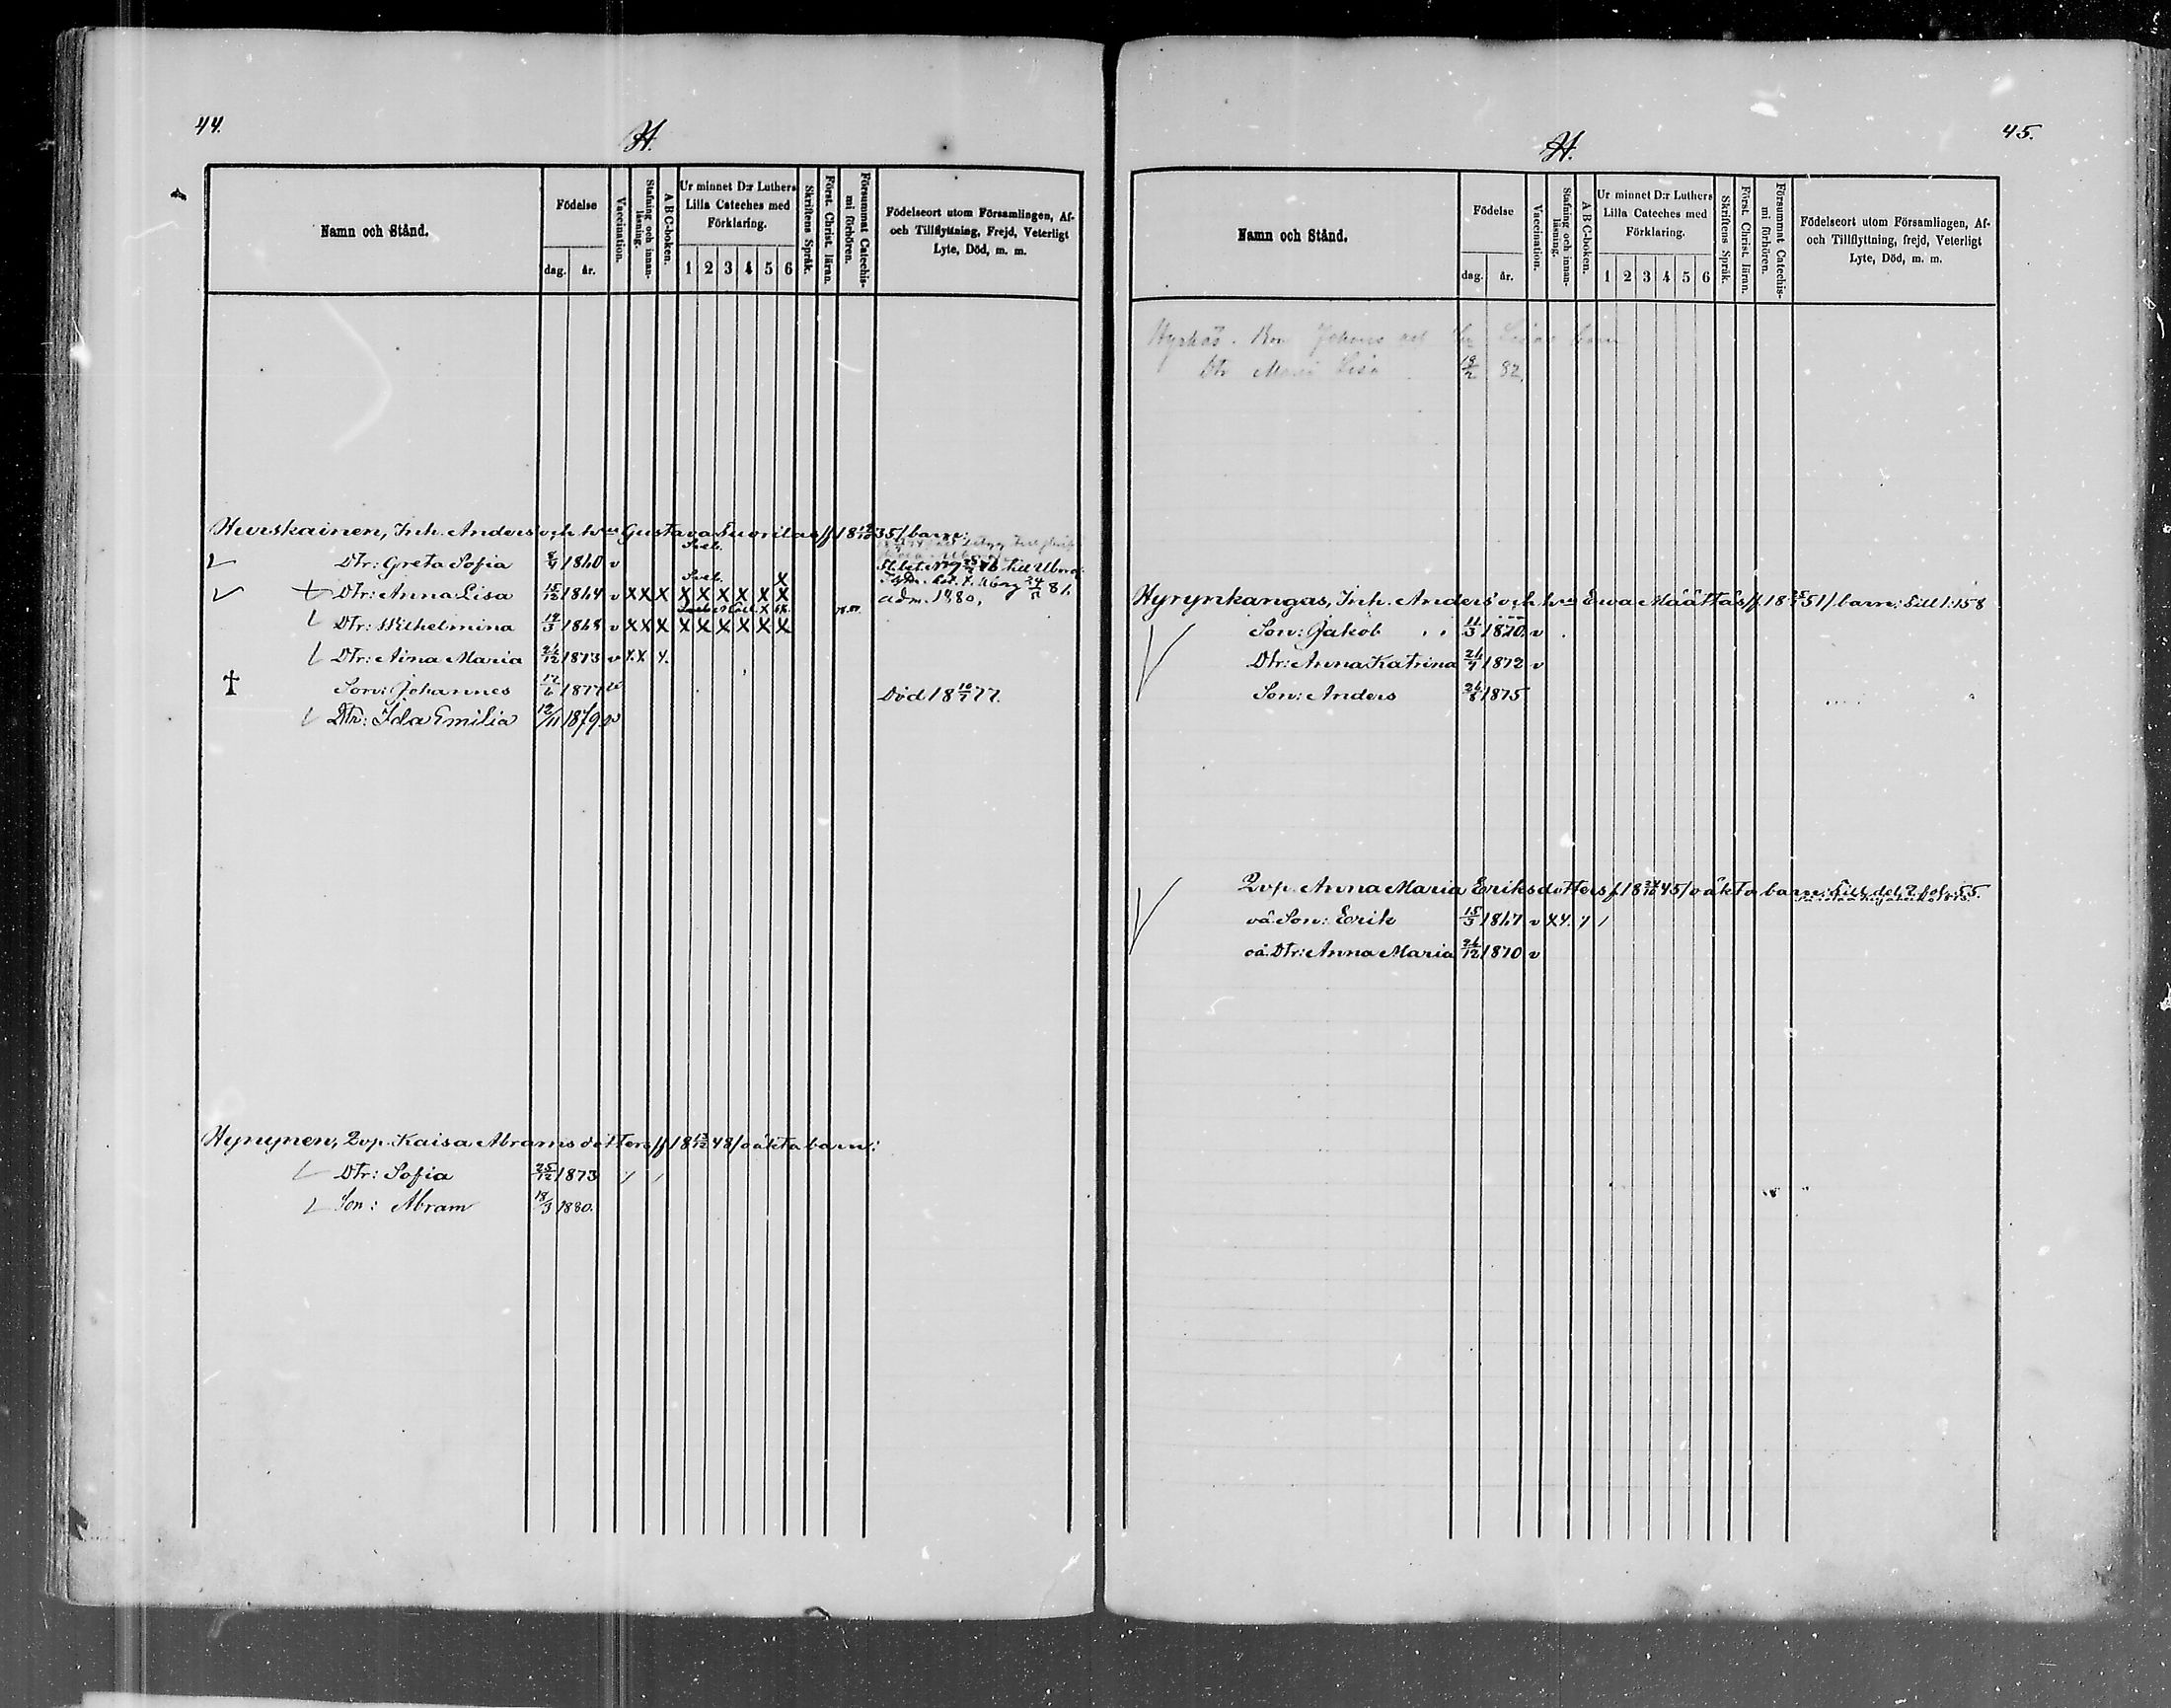 44.
H.
Namn och Stånd.
Födelse
dag. år.
Vaccination.
Stafning och innanläsning.
A B C-boken.
Ur minnet D:r Luthers Lilla Cateches med Förklaring.
1 2 3 4 5 6
Skriftens Språk.
Först. Christ. läran.
Försummat Catechismi förhören.
Födelseort utom Församlingen, Af- och Tillflyttning, Frejd, Veterligt Lyte, Död, m. m.
Hurskainen, Inh. Anders och h:us Gustava Suorilas /f 18 35/ barn:
Dtr: Greta Sofia 1860 v
Dtr: Anna Lisa 15/12 1864 v X X X X X X X X X adm. 1880.
Dtr: Wilhelmina 19/3 1868 v X X X X X X X X X
Dtr: Aina Maria 26/12 1873 v X X X
† Son: Johannes 17/6 1877 Död 18 10/7 77.
Dtr: Ida Emilia 12/11 1879 v
Hynynen, Qvp. Kaisa Abramsdotters /f 18 48/ oäkta barn:
Dtr: Sofia 25/12 1873
Son: Abram 18/3 1880.
45.
H.
Namn och Stånd.
Födelse
dag. år.
Vaccination.
Stafning och innanläsning.
A B C-boken.
Ur minnet D:r Luthers Lilla Cateches med Förklaring.
1 2 3 4 5 6
Skriftens Språk.
Först. Christ. läran.
Försummat Catechismi förhören.
Födelseort utom Församlingen, Af- och Tillflyttning, frejd, Veterligt Lyte, Död, m. m.
Dtr Maria Lisa 82.
Hyrynkangas, Inh. Anders och h:us Ewa Määttäs /f. 18 51/ barn: Till 1:158
Son: Jakob 11/3 1870. v
Dtr: Anna Katrina 26/7 1872 v
Son: Anders 26/8 1875
Qvp. Anna Maria Eriksdotters /f 18 45/ oäkta barn: Till del. 2 fol. 55.
oä. Son: Erik 15/3 1867 v
oä. Dtr: Anna Maria 26/12 1870 v